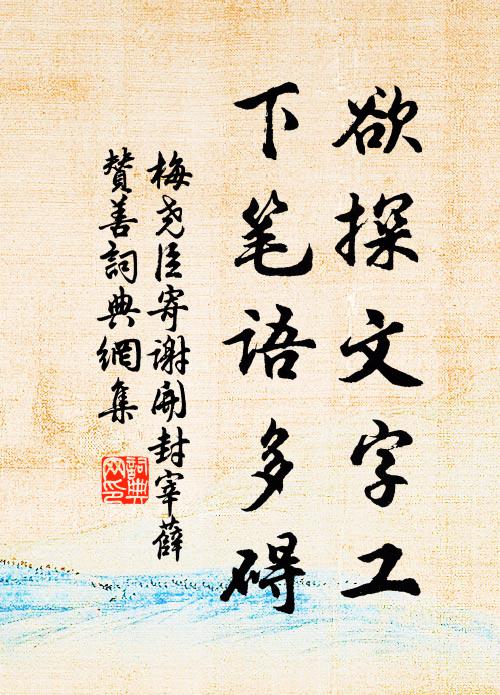 欲探文字工
下笔语多碍
梅尧臣寄谢开封宰薛
赞善词典網集
詞典
网印